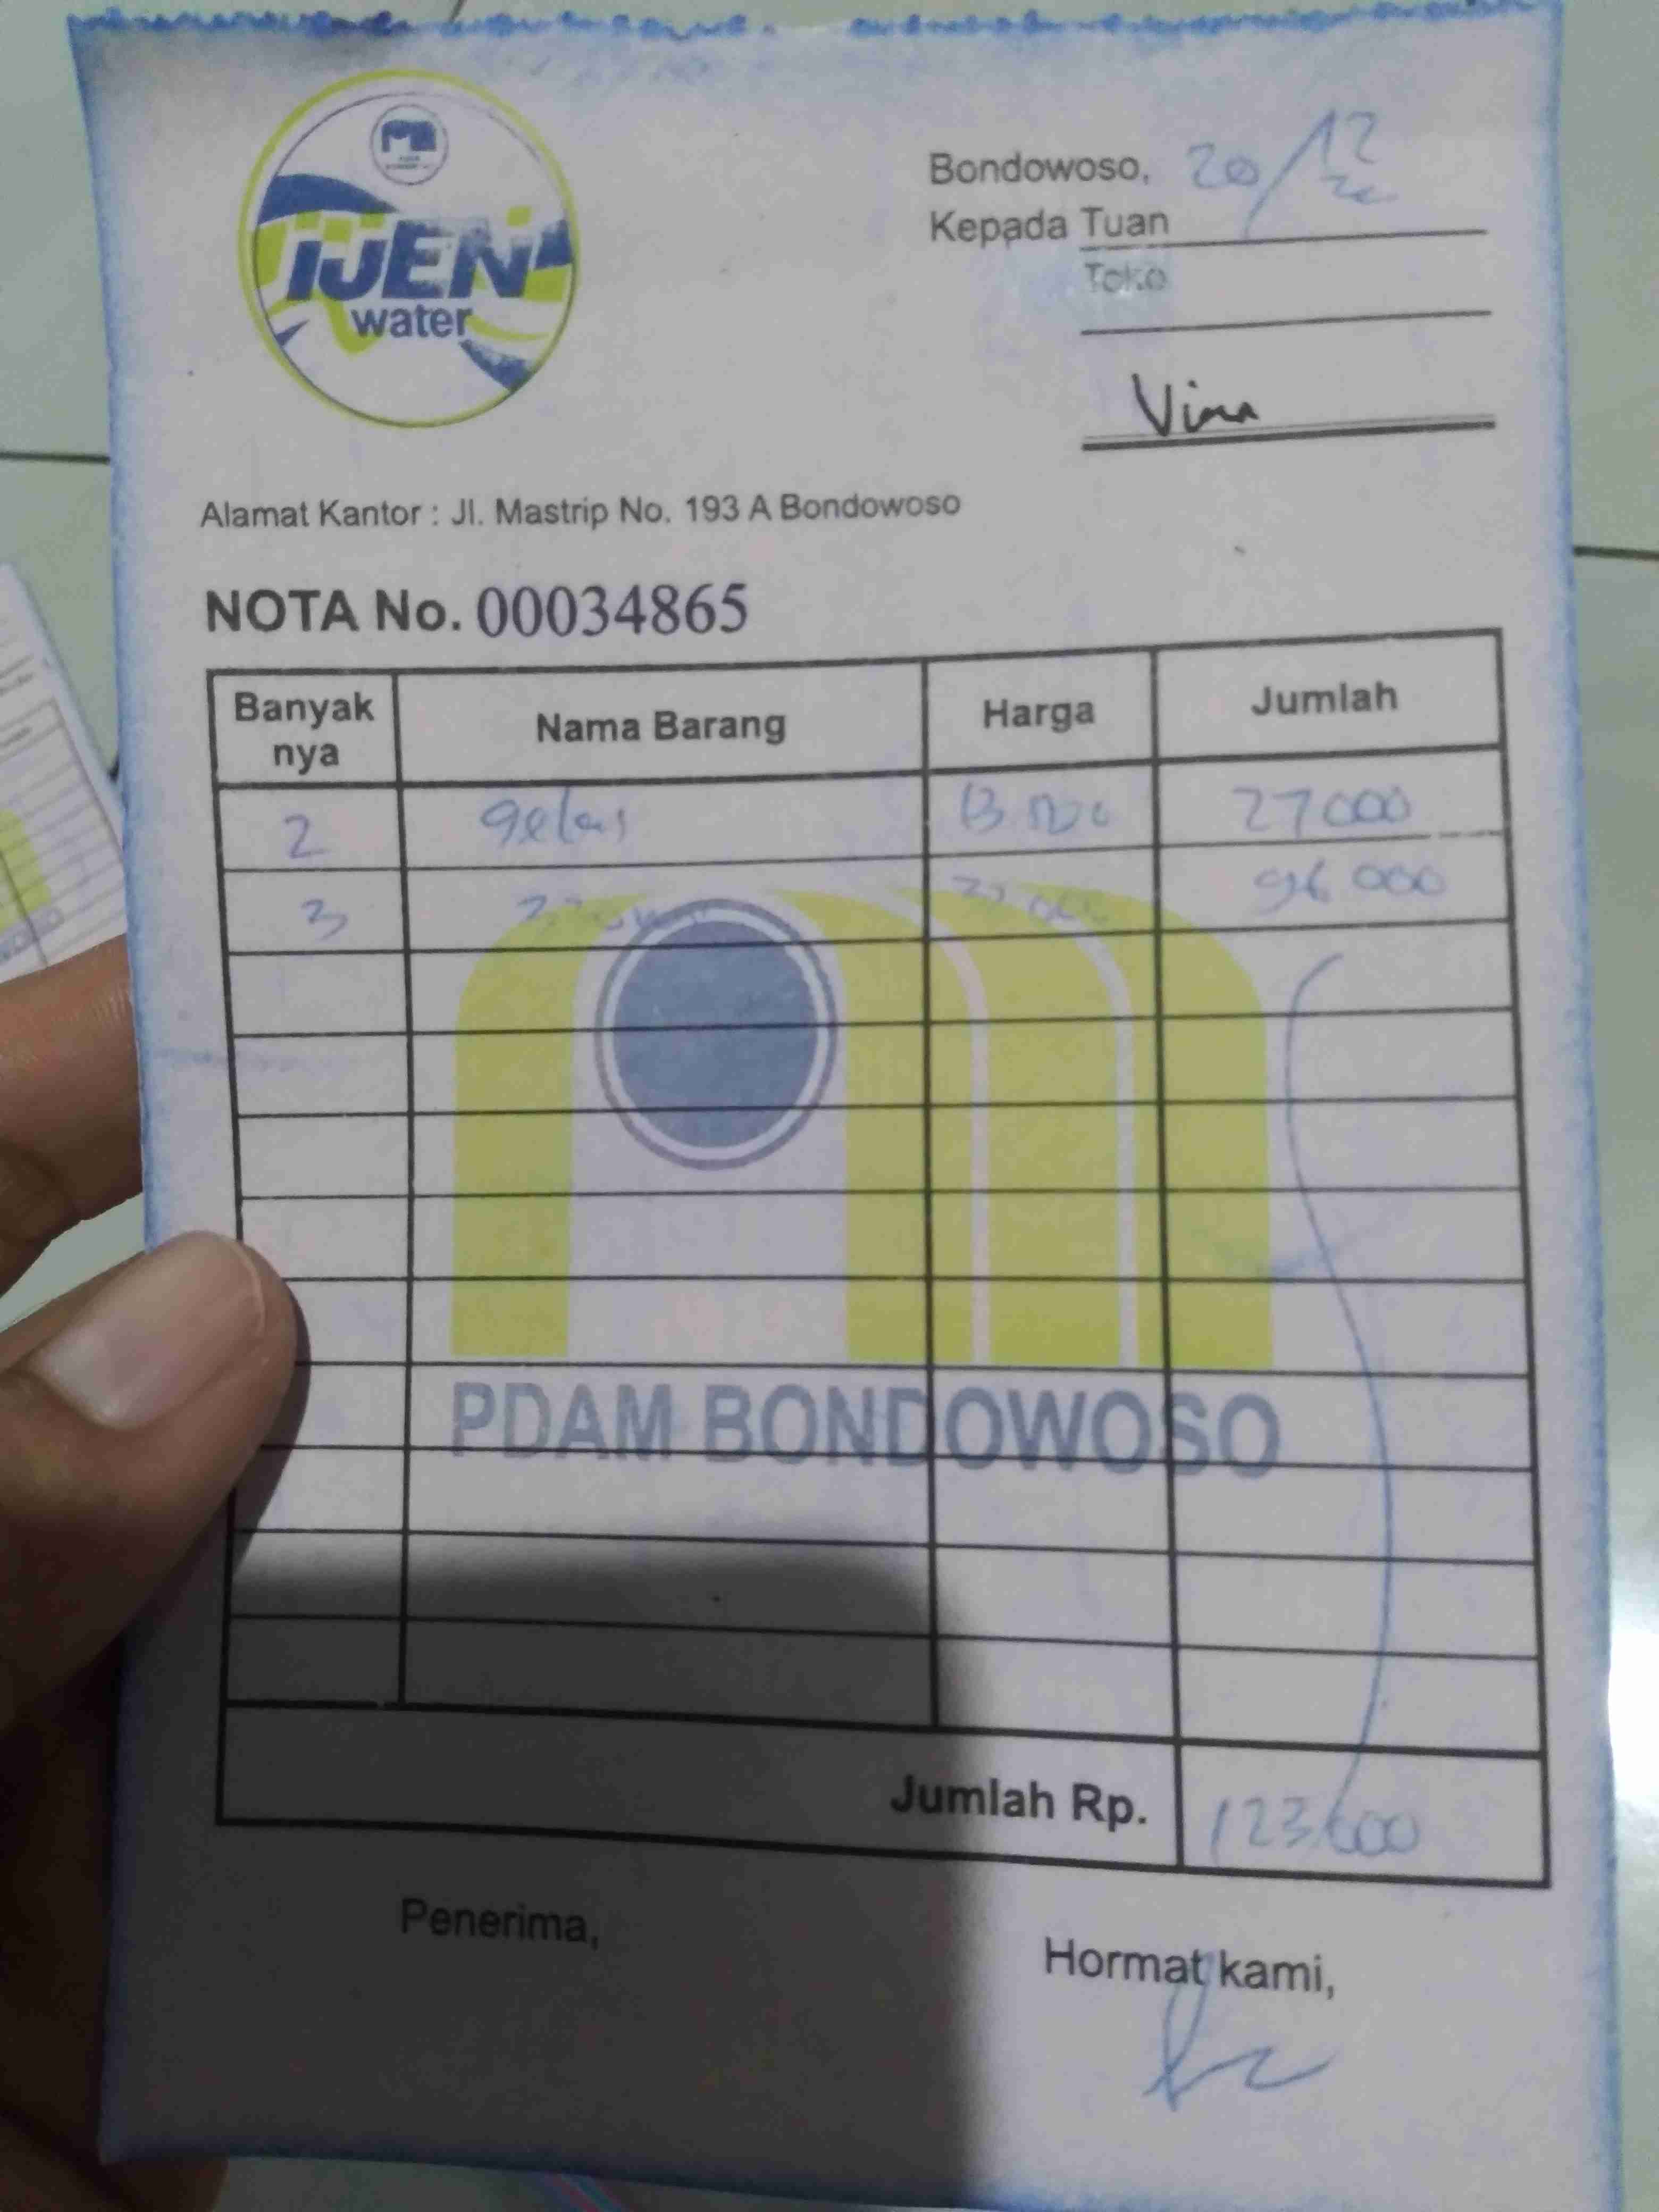 IJEN
water
Bondowoso, 20/12
Kepada Tuan
Toko
Vina
Alamat Kantor : Jl. Mastrip No. 193 A Bondowoso
NOTA No. 00034865
Banyak nya Nama Barang Harga Jumlah
2 gelas 27000
3 96 000
PDAM BONDOWOSO
Jumlah Rp. 123.000
Penerima,
Hormat kami,